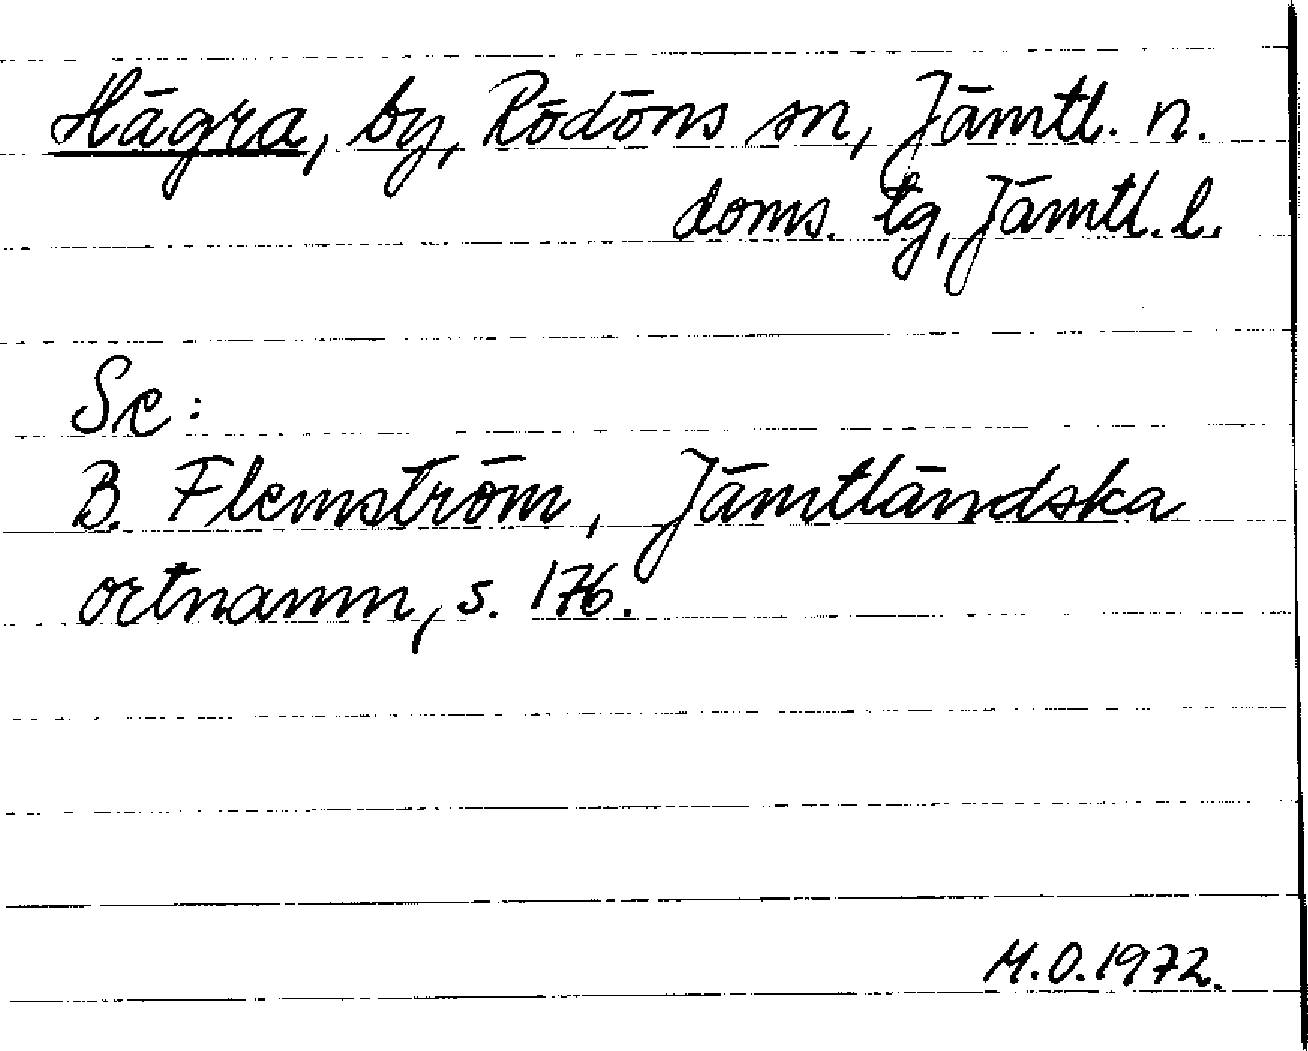 Hägra, by, Rödöns sn, Jämtl. n.
doms. tg, Jämtl. l.
Se:
B. Flemström, Jämtländska
ortnamn, s. 176.
M.O. 1972.